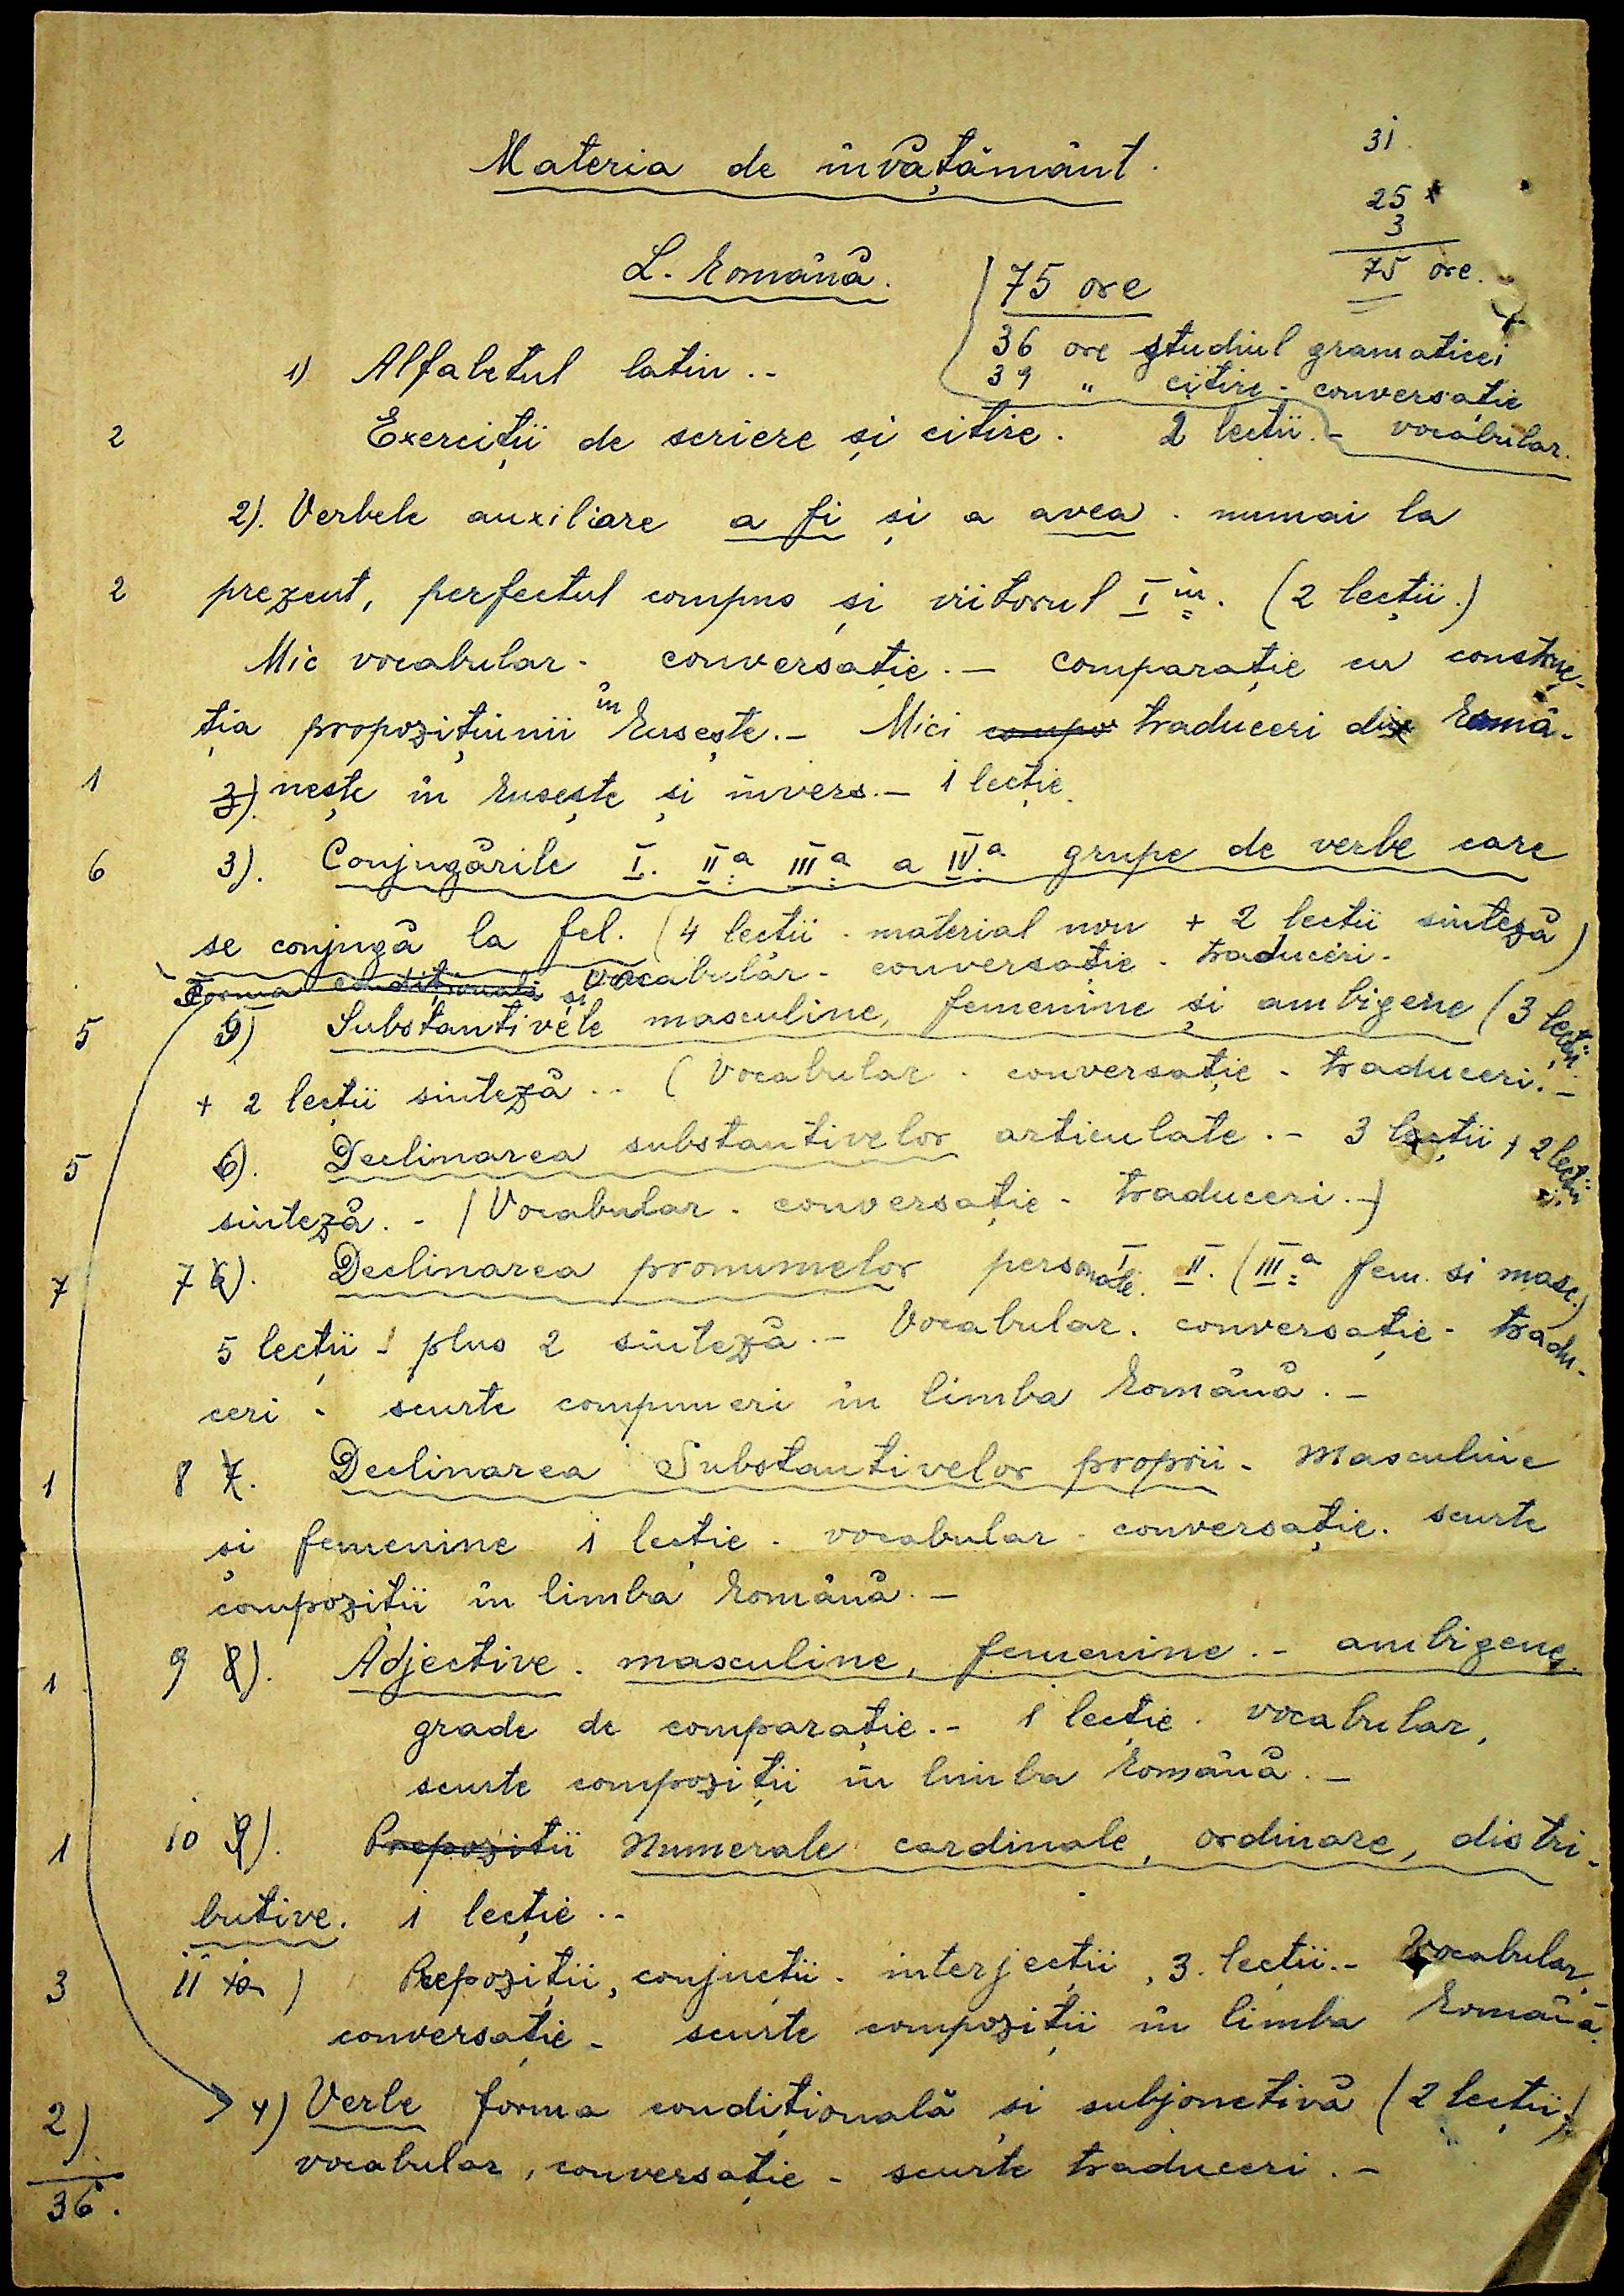 31
Materia de învățământ.
25 x
3
75 ore.
L. Română.
75 ore
36 ore studiul gramaticei
1) Alfabetul latin.-
39 " citire - conversație
2 Exerciții de scriere și citire. 2 lecții. - vocabular.
2). Verbele auxiliare a fi și a avea. numai la
2 prezent, perfectul compus și viitorul I iu. (2 lecții.)
Mic vocabular. conversație. - comparație cu construc-
ția propozițiunii în rusește. - Mici compo traduceri din româ-
1 3). nește în rusește și invers. - 1 lecție.
6 3). Conjugările I. II a III a a IV a grupe de verbe care
se conjugă la fel. (4 lecții - material nou + 2 lecții sinteză)
Forma condițională și Vocabular - conversație - traduceri -
5 5) Substantivele masculine, femenine și ambigene (3 lecții
+ 2 lecții sinteză.. (Vocabular - conversație - traduceri. -
5 6). Declinarea substantivelor articulate. - 3 lecții + 2 lecții
sinteză. - (Vocabular. conversație - traduceri. -)
7 7 6). Declinarea pronumelor personale. I II. (III a fem. si masc.)
5 lecții - plus 2 sinteză. - Vocabular. conversație - tradu-
ceri - scurte compuneri in limba română. -
1 8 7. Declinarea Substantivelor proprii - masculine
și femenine 1 lecție - vocabular - conversație. scurte
compoziții in limba română. -
1 9 8). Adjective. masculine, femenine. - ambigene.
grade de comparație. - 1 lecție. vocabular,
scurte compoziții in limba română. -
1 10 9). Prepoziții Numerale cardinale, ordinare, distri-
butive. 1 lecție..
3 11 10) Prepoziții, conjucții - interjecții, 3. lecții. - Vocabular,
conversație - scurte compoziții in limba română.
2) 4) Verbe forma condițională și subjonctivă (2 lecții)
vocabular, conversație - scurte traduceri. -
36.